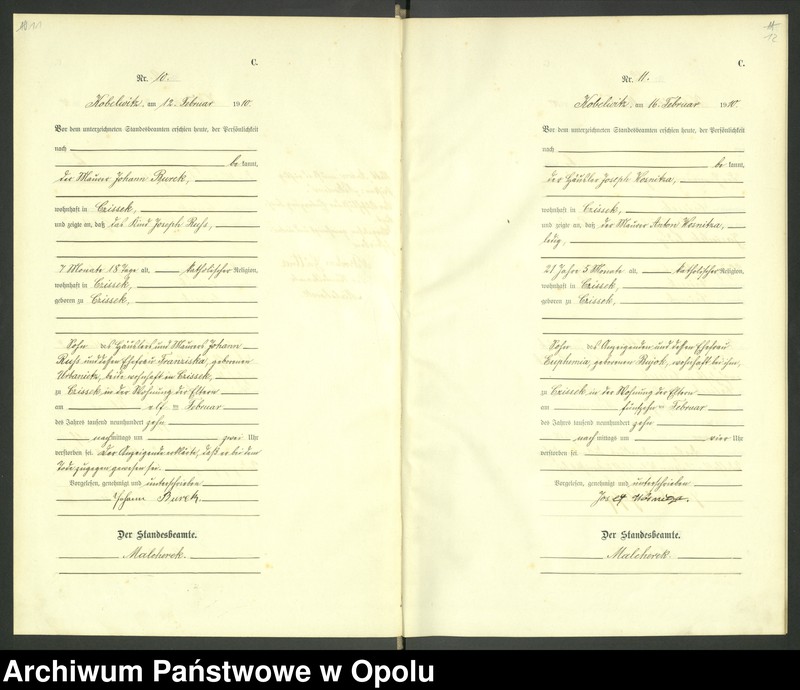 C.
Nr. 10.
Kobelwitz, am 12. Februar 1910.
Vor dem unterzeichneten Standesbeamten erschien heute, der Persönlichkeit
nach
be kannt,
der Maurer Johann Burek,
wohnhaft in Czissek,
und zeigte an, daß das Kind Joseph Russ,
7 Monate 18 Tage alt, katholischer Religion,
wohnhaft in Czissek,
geboren zu Czissek,
Sohn des Häuslers und Maurers Johann
Russ und dessen Ehefrau Franziska, geborenen
Urbanietz, beide wohnhaft in Czissek,
zu Czissek, in der Wohnung der Eltern
am elf ten Februar
des Jahres tausend neunhundert zehn
nachmittags um zwei Uhr
verstorben sei. Der Anzeigende erklärte, daß er bei dem
Tode zugegen gewesen sei.
Vorgelesen, genehmigt und unterschrieben
Johann Burek
Der Standesbeamte.
Malcherek.
11
12
C.
Nr. 11.
Kobelwitz, am 16. Februar 1910.
Vor dem unterzeichneten Standesbeamten erschien heute, der Persönlichkeit
nach
be kannt,
der Häusler Joseph Wosnitza,
wohnhaft in Czissek,
und zeigte an, daß der Maurer Anton Wosnitza,
ledig,
21 Jahre 5 Monate alt, katholischer Religion,
wohnhaft in Czissek,
geboren zu Czissek,
Sohn des Anzeigenden und dessen Ehefrau
Euphemia, geborenen Bujok, wohnhaft bei ihm,
zu Czissek, in der Wohnung der Eltern
am fünfzehn ten Februar
des Jahres tausend neunhundert zehn
nach mittags um vier Uhr
verstorben sei.
Vorgelesen, genehmigt und unterschrieben
Josef Wosnitza.
Der Standesbeamte.
Malcherek.
Archiwum Państwowe w Opolu